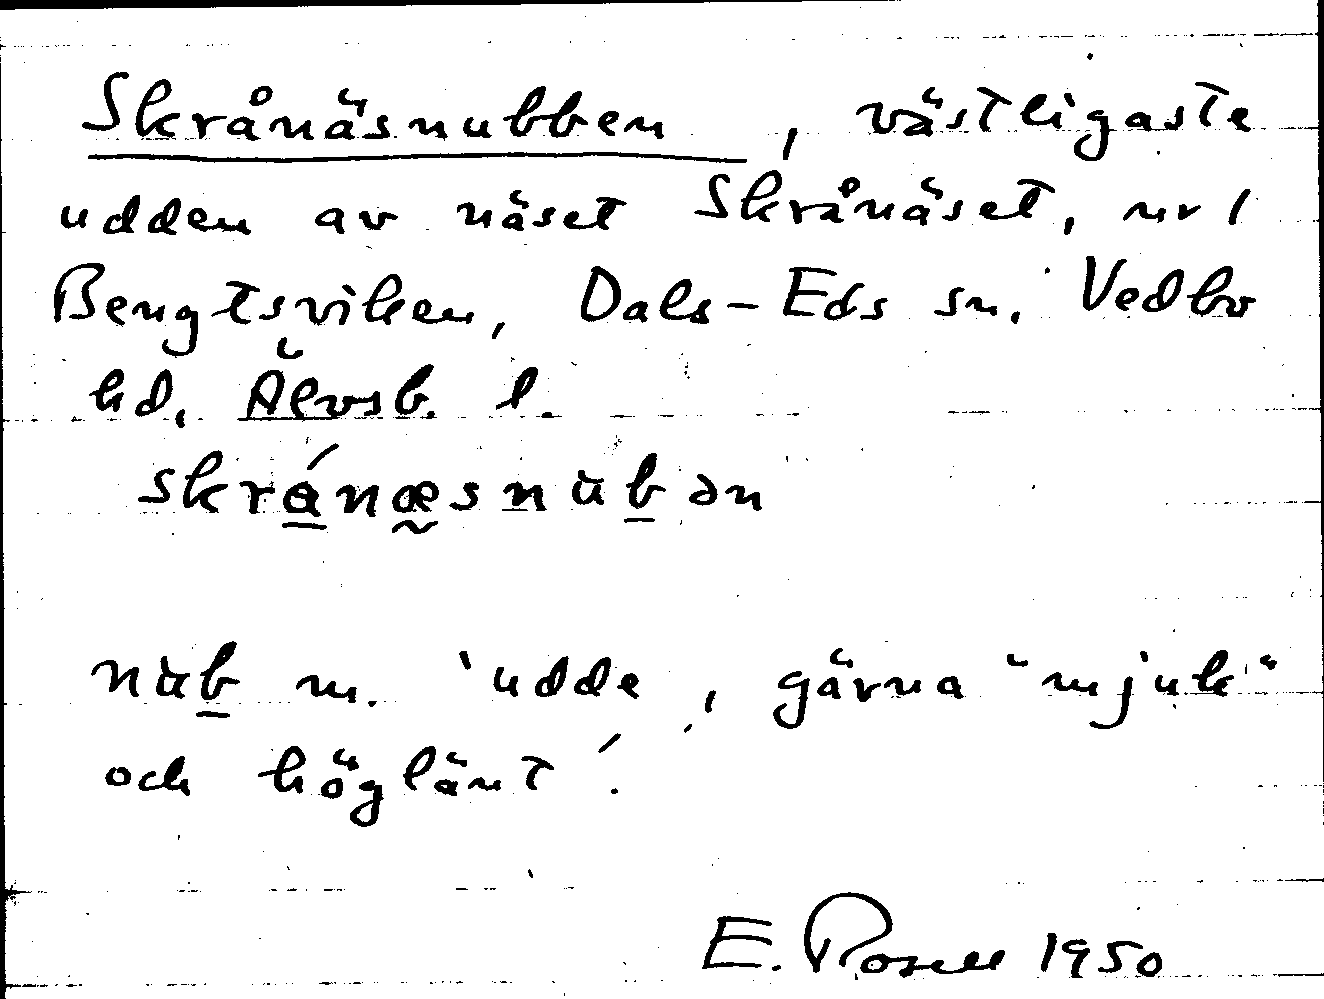 Skrånäsnubben, västligaste
udden av näset Skrånäset, nr 1
Bengtsviken, Dals-Eds sn. Vedbo
hd. Älvsb. l.
skrá̱næ̰snùḇən
nùḇ m. 'udde, gärna "mjuk"
och höglänt'.
E. Rosell 1950